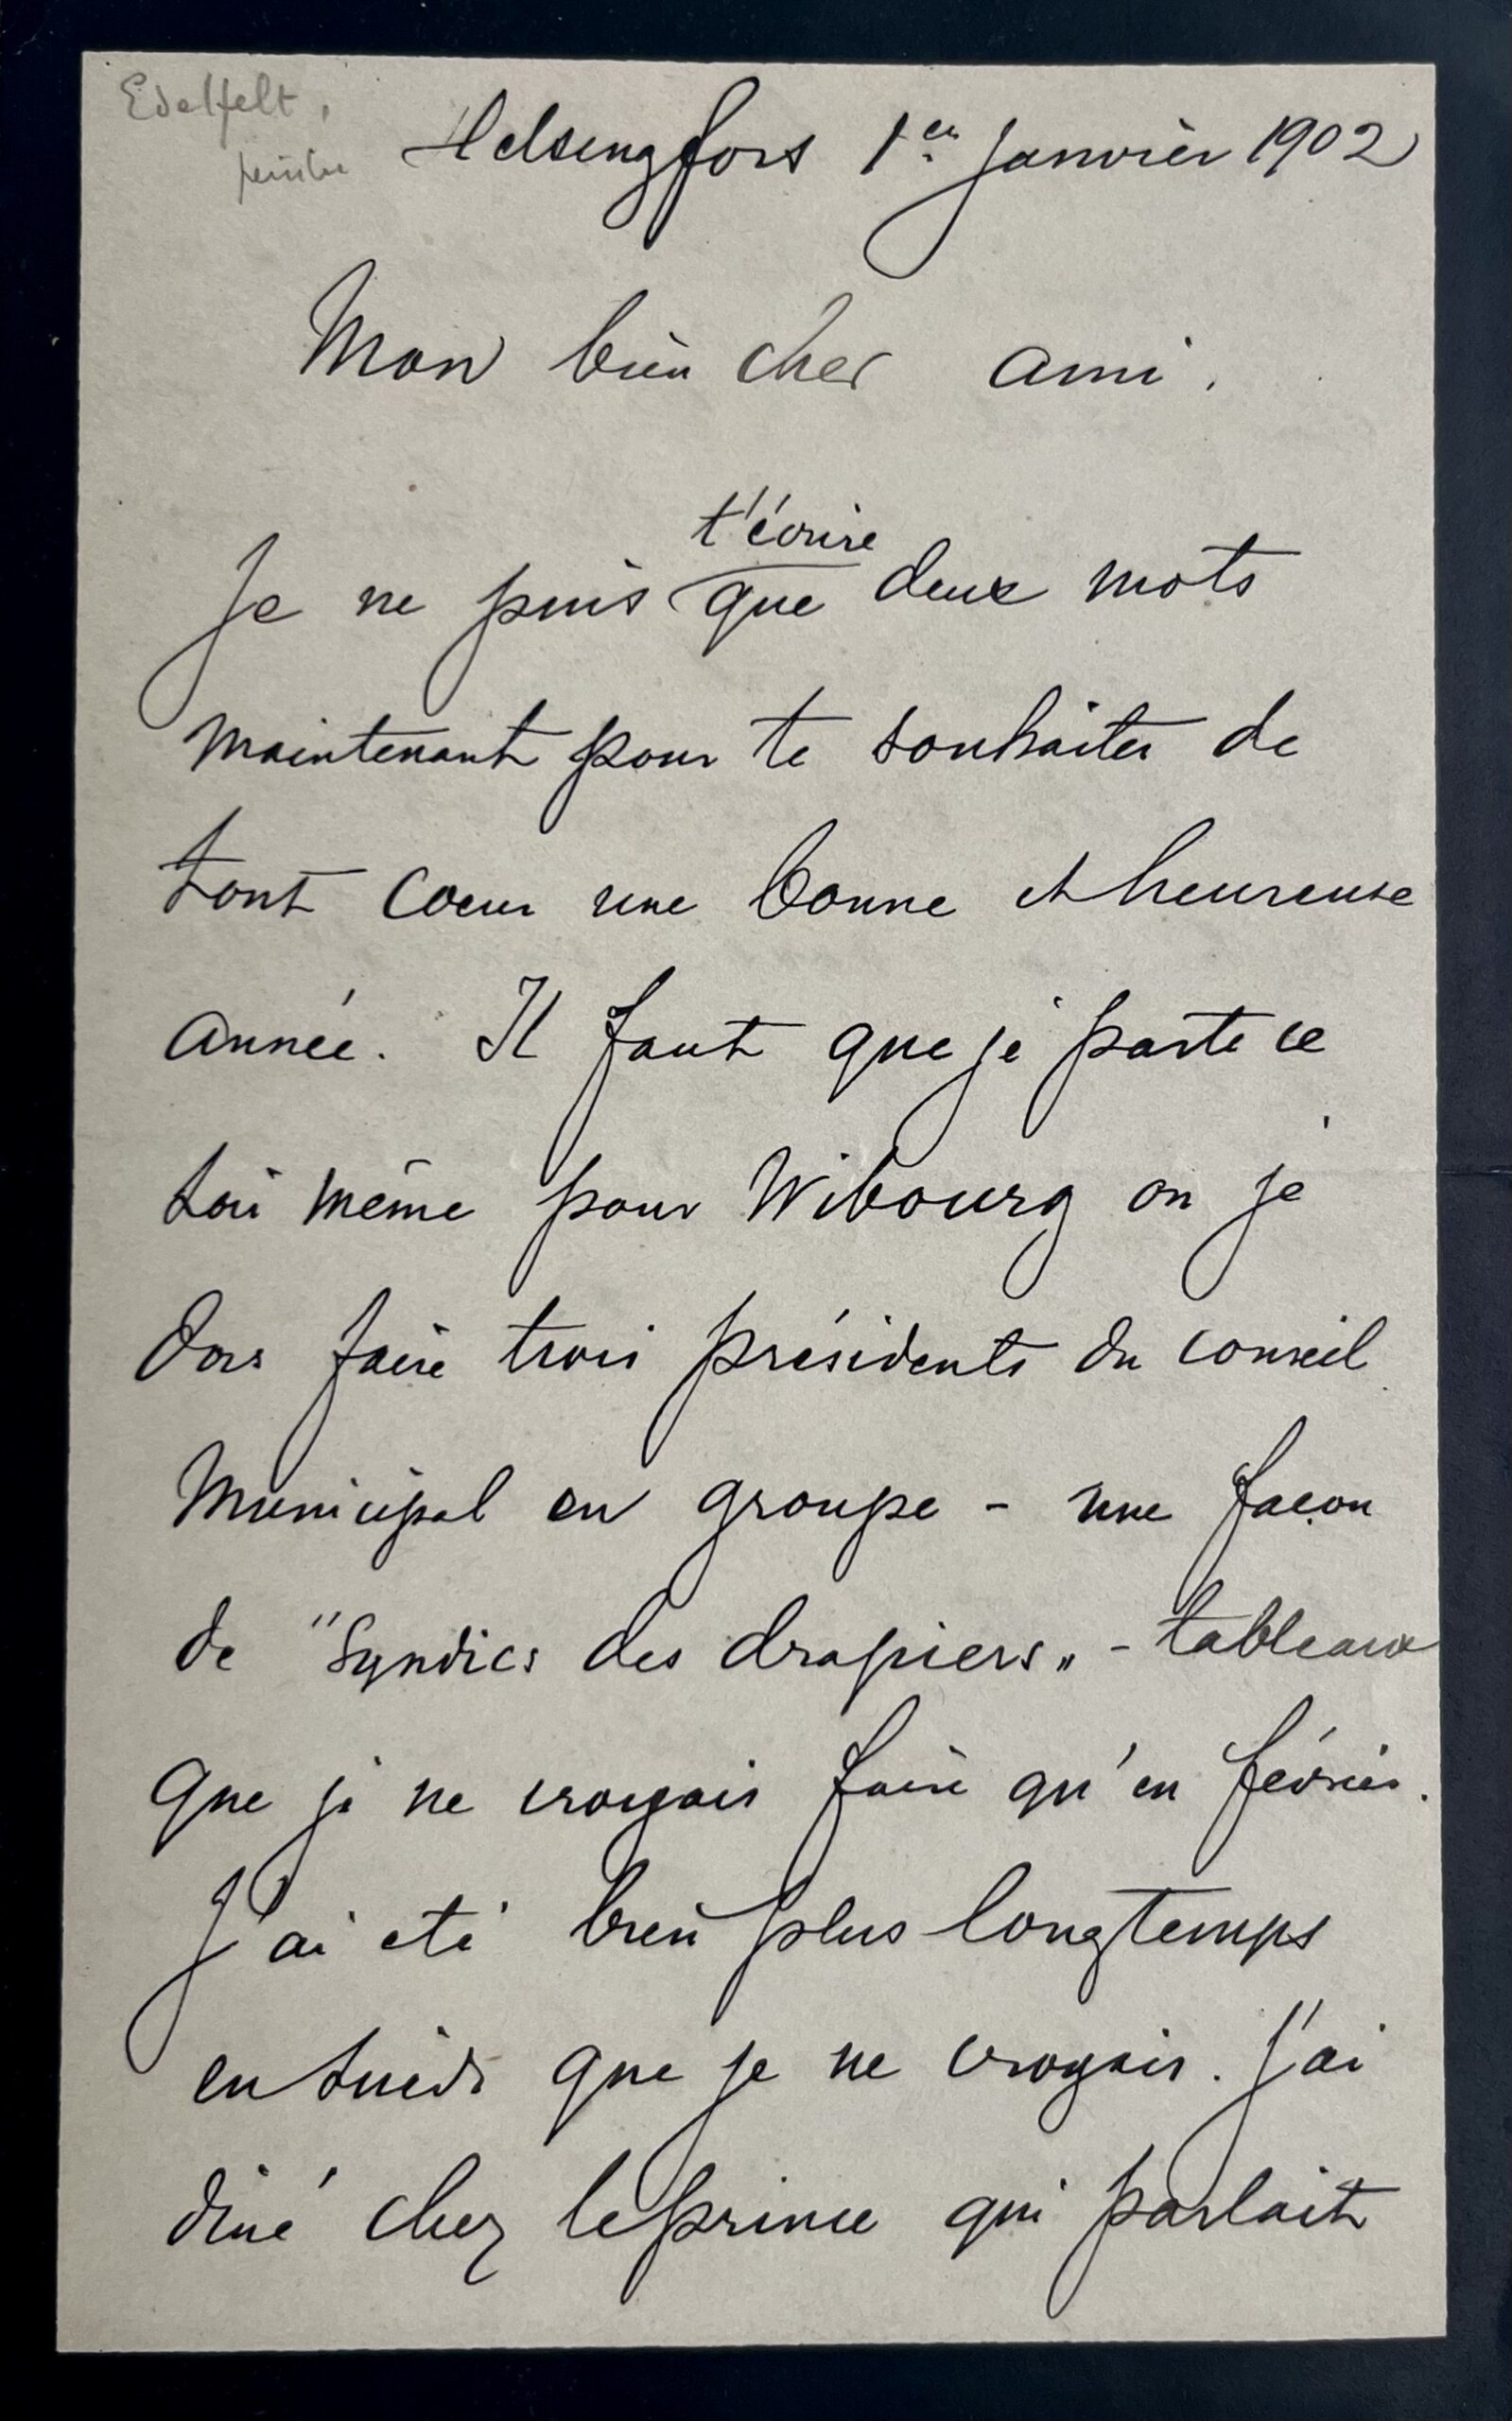 Edelfelt,
peintre
Helsingfors 1er janvier 1902
Mon bien cher ami.
t'écrire
Je ne puis que deux mots
maintenant pour te souhaiter de
tout coeur une bonne et heureuse
année. Il faut que je parte ce
soir même pour Wibourg où je
dois faire trois présidents du conseil
Municipal en groupe - une façon
de "Syndics des drapiers„ - tableaux
que je ne croyais faire qu'en février.
J'ai été bien plus longtemps
en Suède que je ne croyais. J'ai
diné chez le prince qui parlait